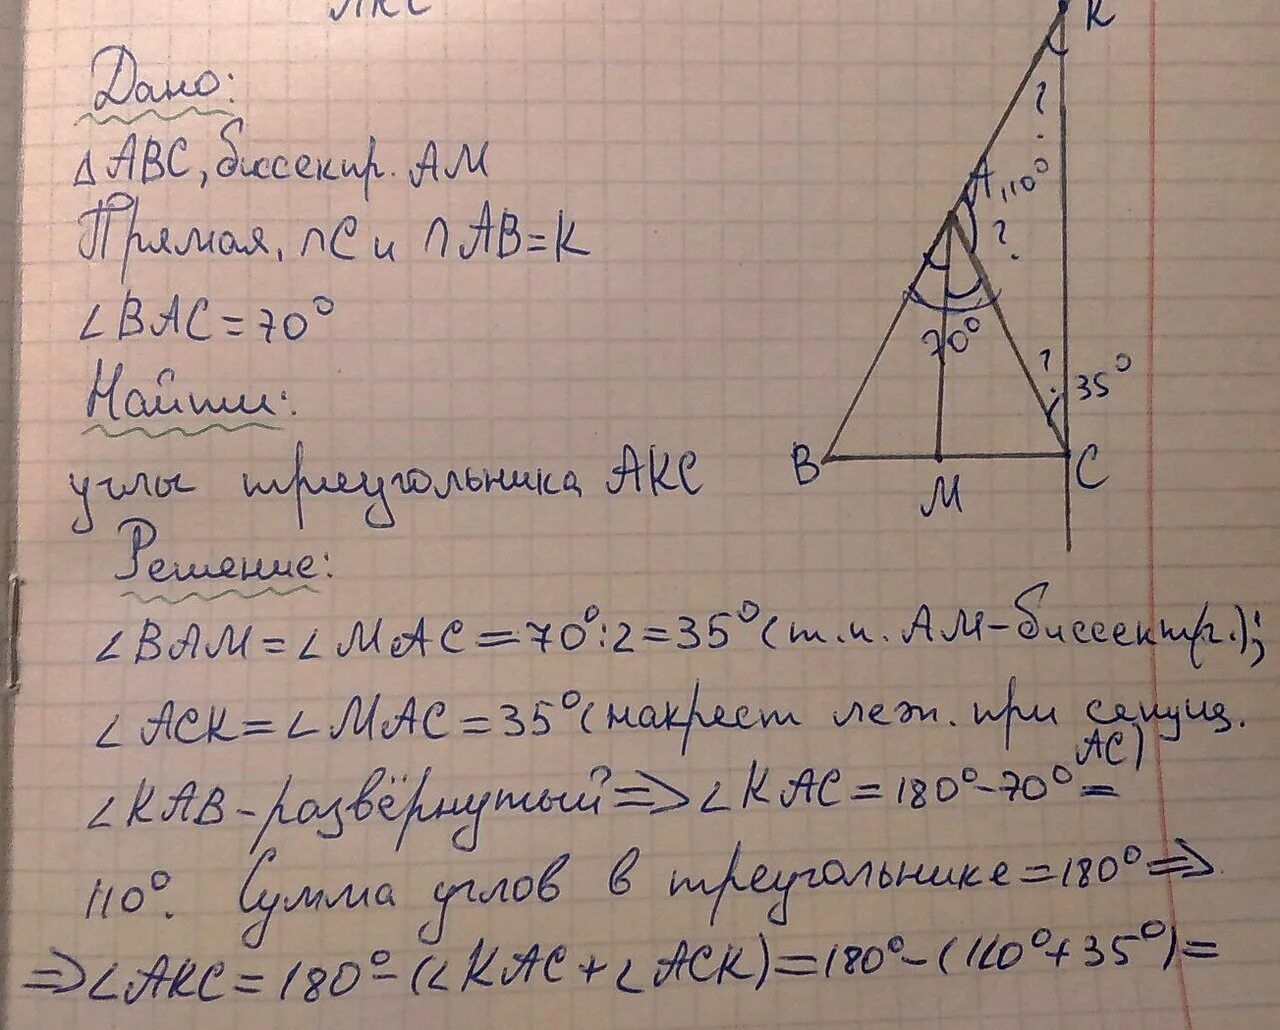 АКС
Дано:
△ABC, биссектр. AM
Прямая, ∩C и ∩AB=K
∠BAC=70°
Найти:
углы треугольника AKC
Решение:
∠BAM=∠MAC=70°:2=35°(т.к. AM-биссектр.);
∠ACK=∠MAC=35°(накрест леж. при секущ. AC)
∠KAB-развёрнутый=>∠KAC=180°-70°=
110°. Сумма углов в треугольнике=180°=>
=>∠AKC=180°-(∠KAC+∠ACK)=180°-(110°+35°)=
K
?
A
110°
?
70°
?
35°
B
M
C